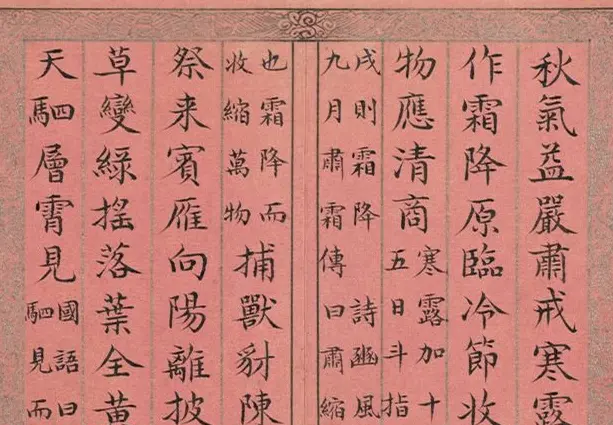 秋氣益嚴肅戒寒露
作霜降原臨冷節收
物應清商寒露加十
五日斗指
戌則霜降詩豳風
九月肅霜傳曰肅縮
也霜降而
收縮萬物
捕獸豺陳
祭来賓雁向陽離披
草變綠揺落葉全黄
天駟層霄見國語曰
駟見而